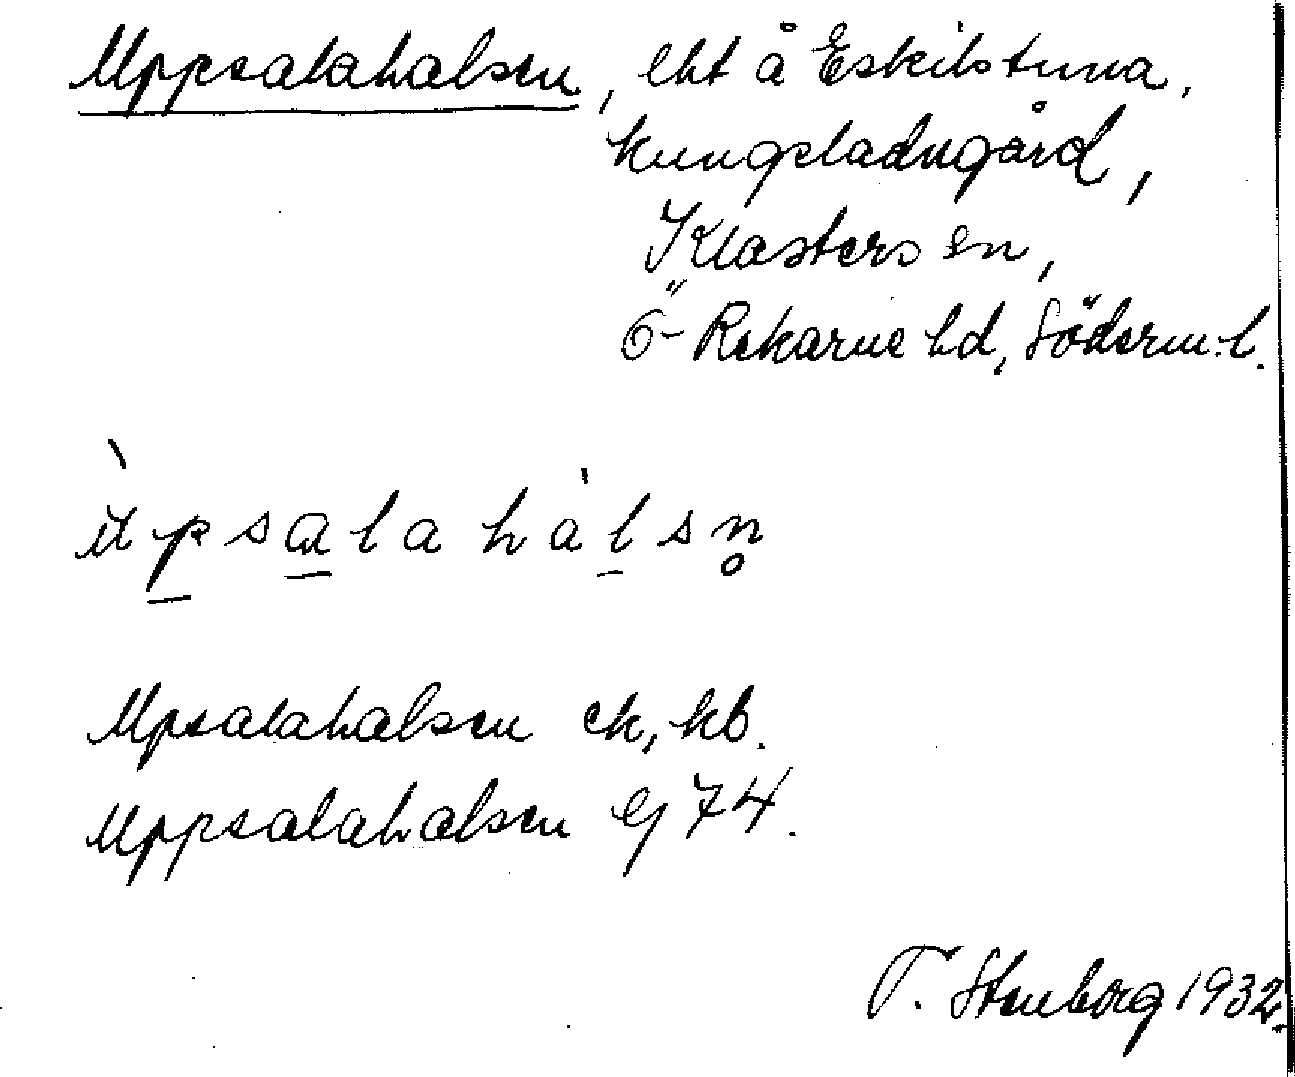 Uppsalahalsen, lht å Eskilstuna,
kungsladugård,
Klosters sn,
Ö-Rekarne hd, Söderm:l.
ùpsalahàlsn̥
Upsalahalsen ek, kb.
Uppsalahalsen Gj 74.
T. Stenborg 1932.